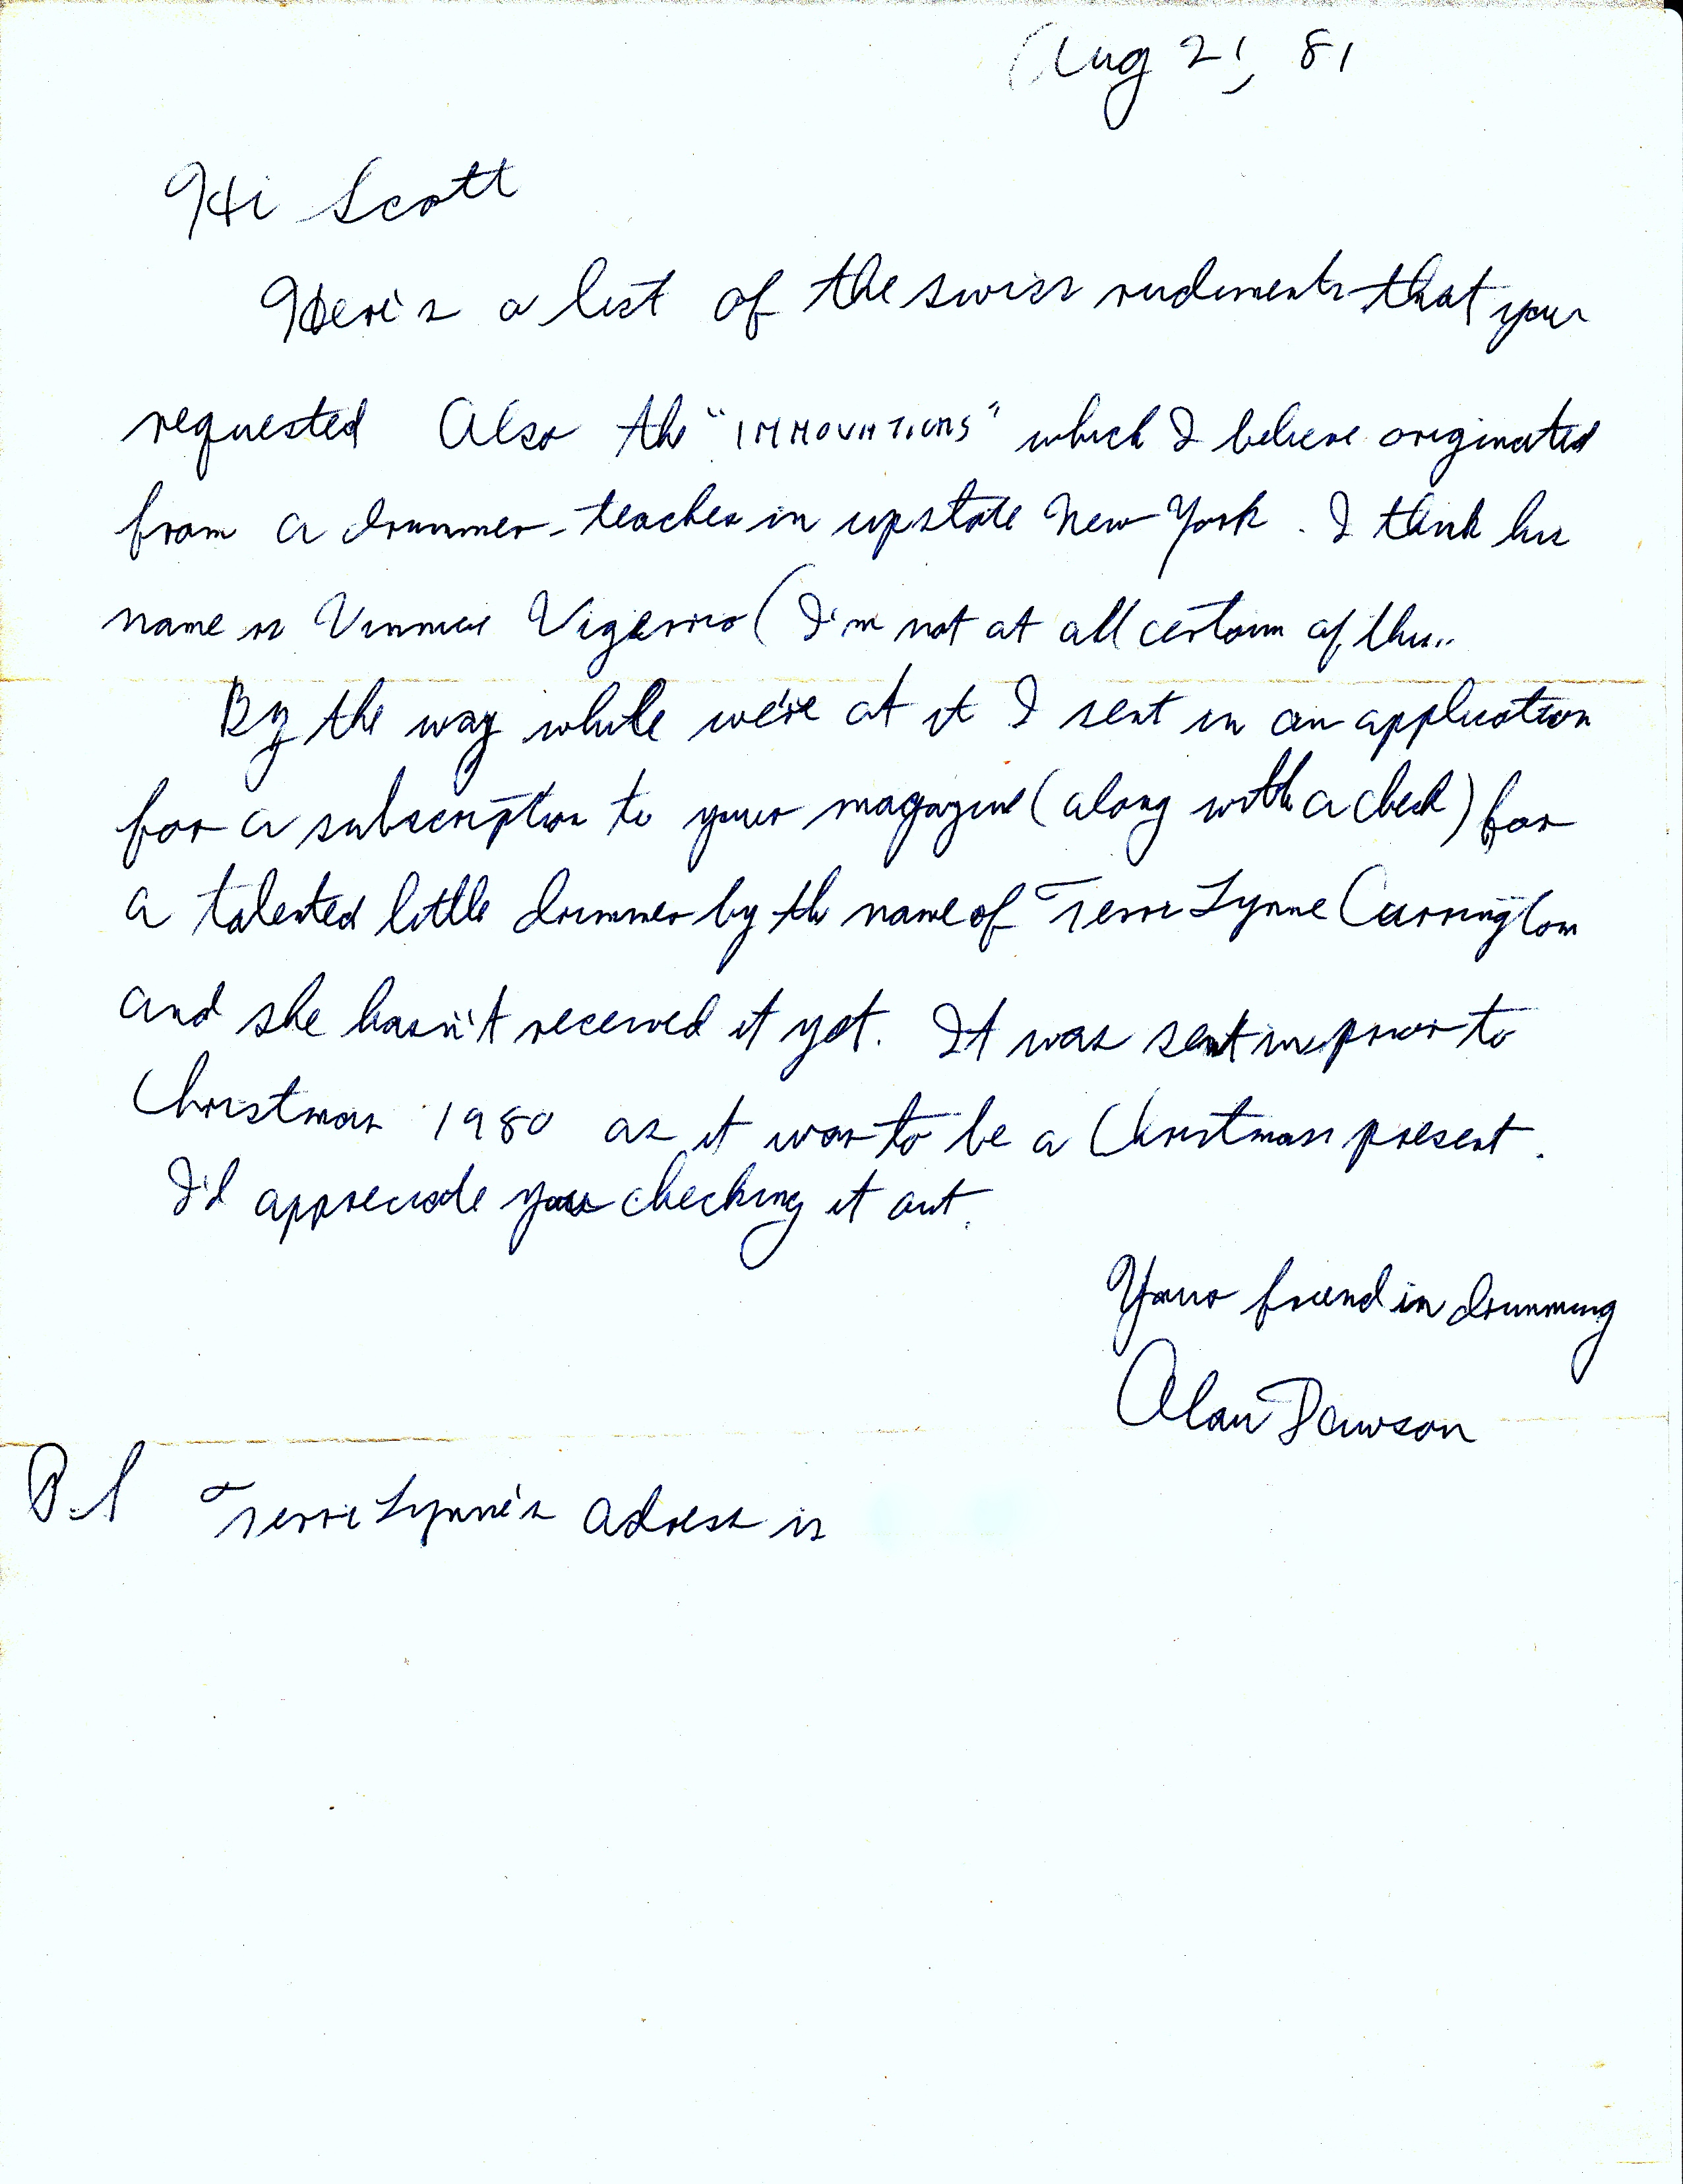 Aug 21, 81
Hi Scott
Here's a list of the swiss rudiments that you
requested Also the "INNOVATIONS" which I believe originated
from a drummer-teacher in upstate New York. I think his
name is Vinnie (I'm not at all certain of this..
By the way while we're at it I sent in an application
for a subscription to your magazine (along with a check) for
a talented little drummer by the name of Terri Lynne Carrington
and she hasn't received it yet. It was sent in prior to
Christmas 1980 as it was to be a Christmas present.
I'd appreciate your checking it out.
Your friend in drumming
Alan Dawson
P.S Terri Lynne's adress is